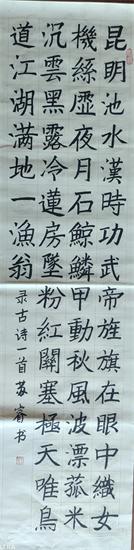 昆明池水漢時功武帝旌旗在眼中織女
機絲虛夜月石鯨鱗甲動秋風波漂菰米
沉雲黑露冷蓮房墜粉紅關塞極天唯鳥
道江湖满地一漁翁
录古诗一首 苏睿书